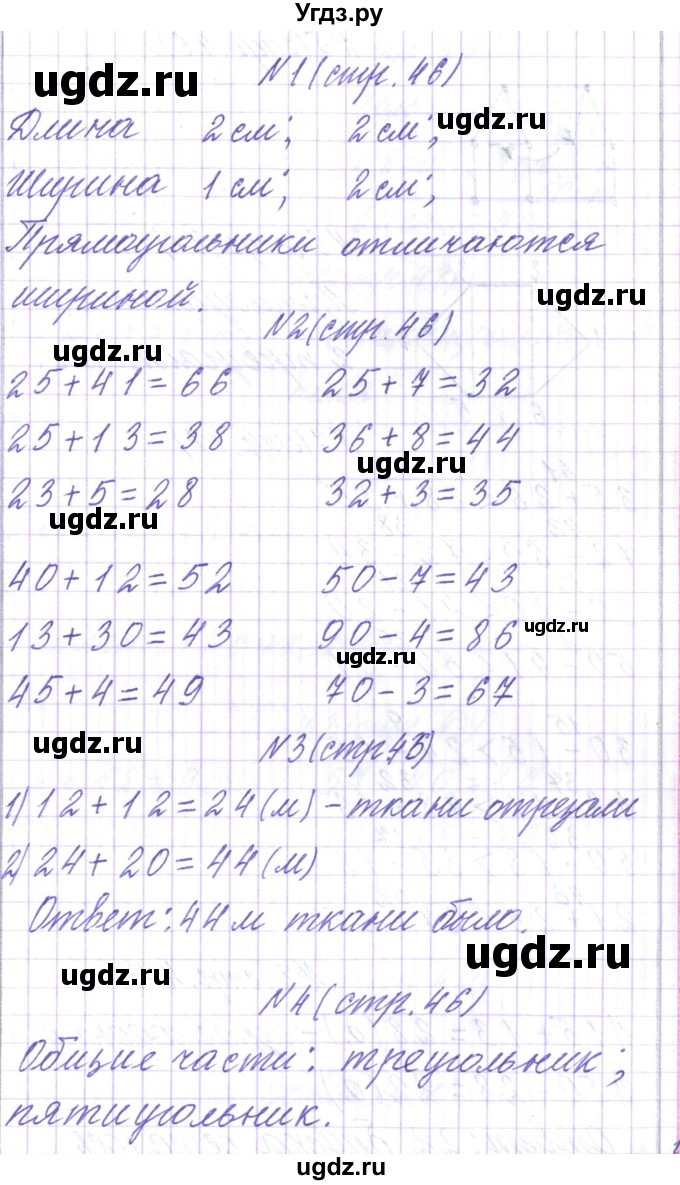 Угдз.ру
N1 (стр. 46)
ugdz.ru
Длина 2 см; 2 см;
ugdz.ru
Ширина 1 см; 2 см;
Прямоугольники отличаются
шириной.
ugdz.ru
N2 (стр. 46)
ugdz.ru
25+41=66 25+7=32
25+13=38 36+8=44
ugdz.ru
23+5=28 32+3=35
ugdz.ru
40+12=52 50-7=43
13+30=43 90-4=86
ugdz.ru
ugdz.ru
45+4=49 70-3=67
ugdz.ru
N3 (стр.46)
1) 12+12=24 (м) - ткани отрезали
2) 24+20=44 (м)
Ответ: 44 м ткани было.
ugdz.ru
ugdz.ru
N4 (стр. 46)
Общие части: треугольник;
пятиугольник.
ugdz.ru